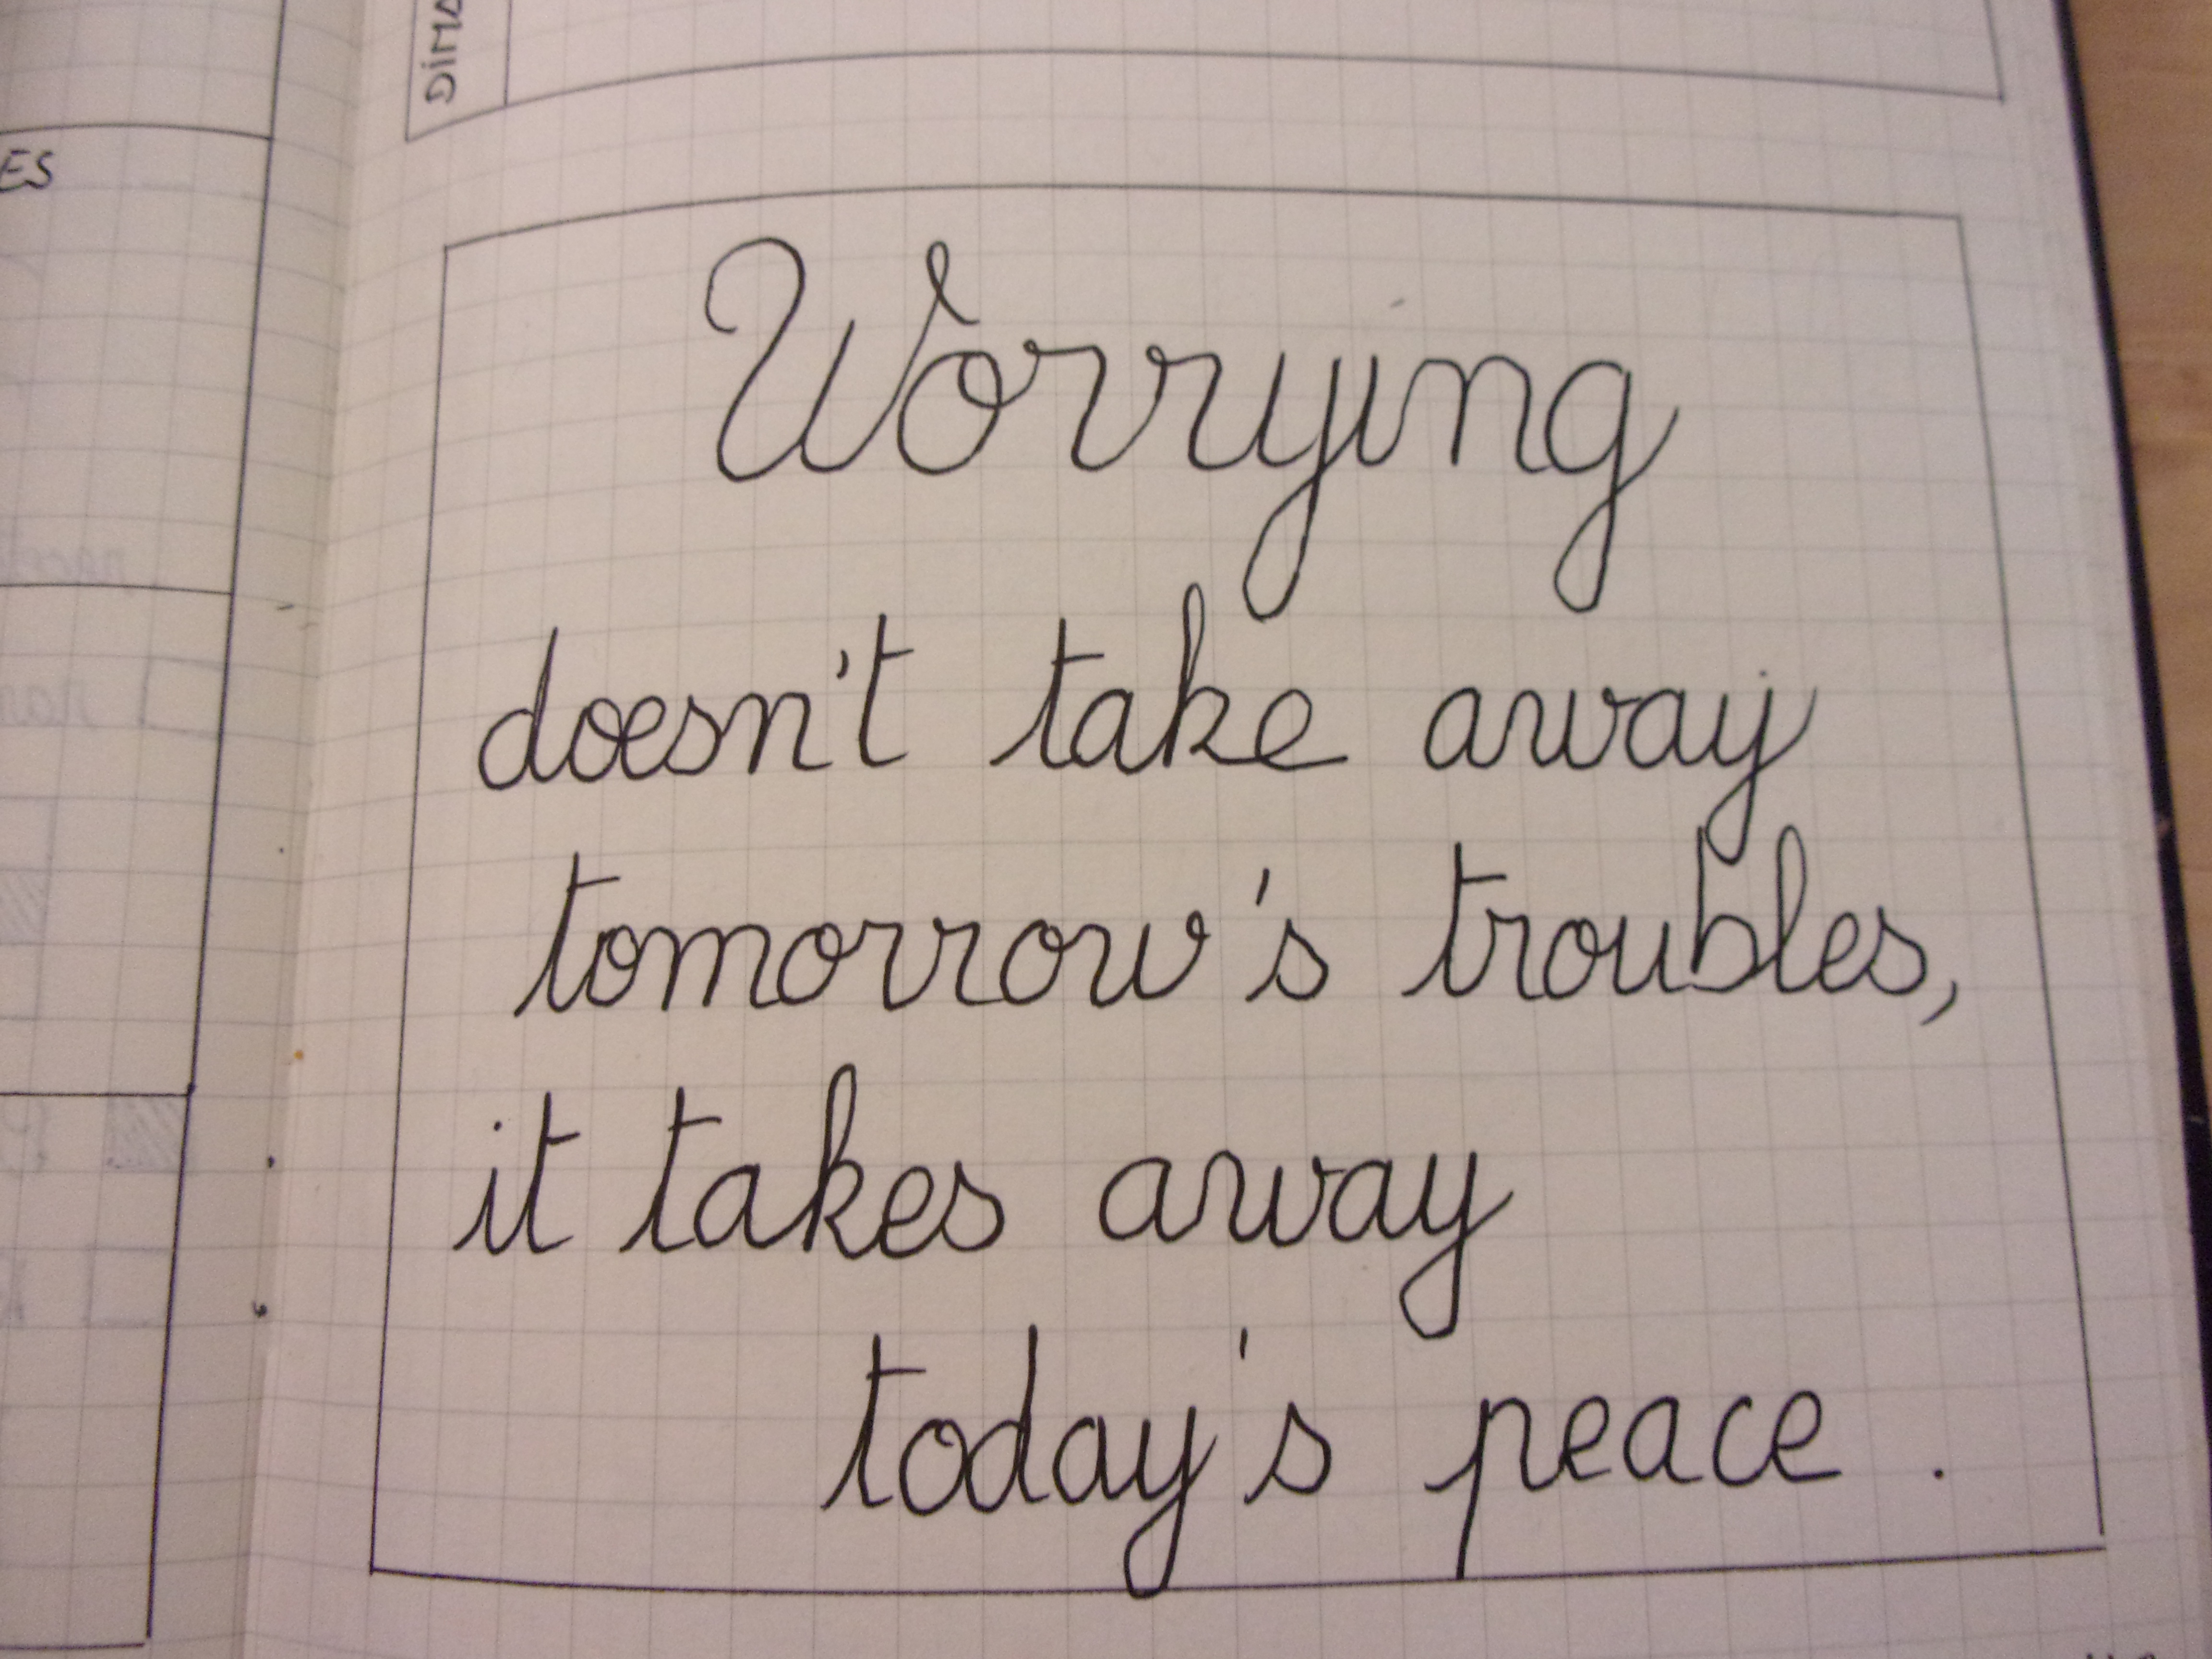 Worrying
doesn't take away
tomorrow's troubles,
it takes away
today's peace.